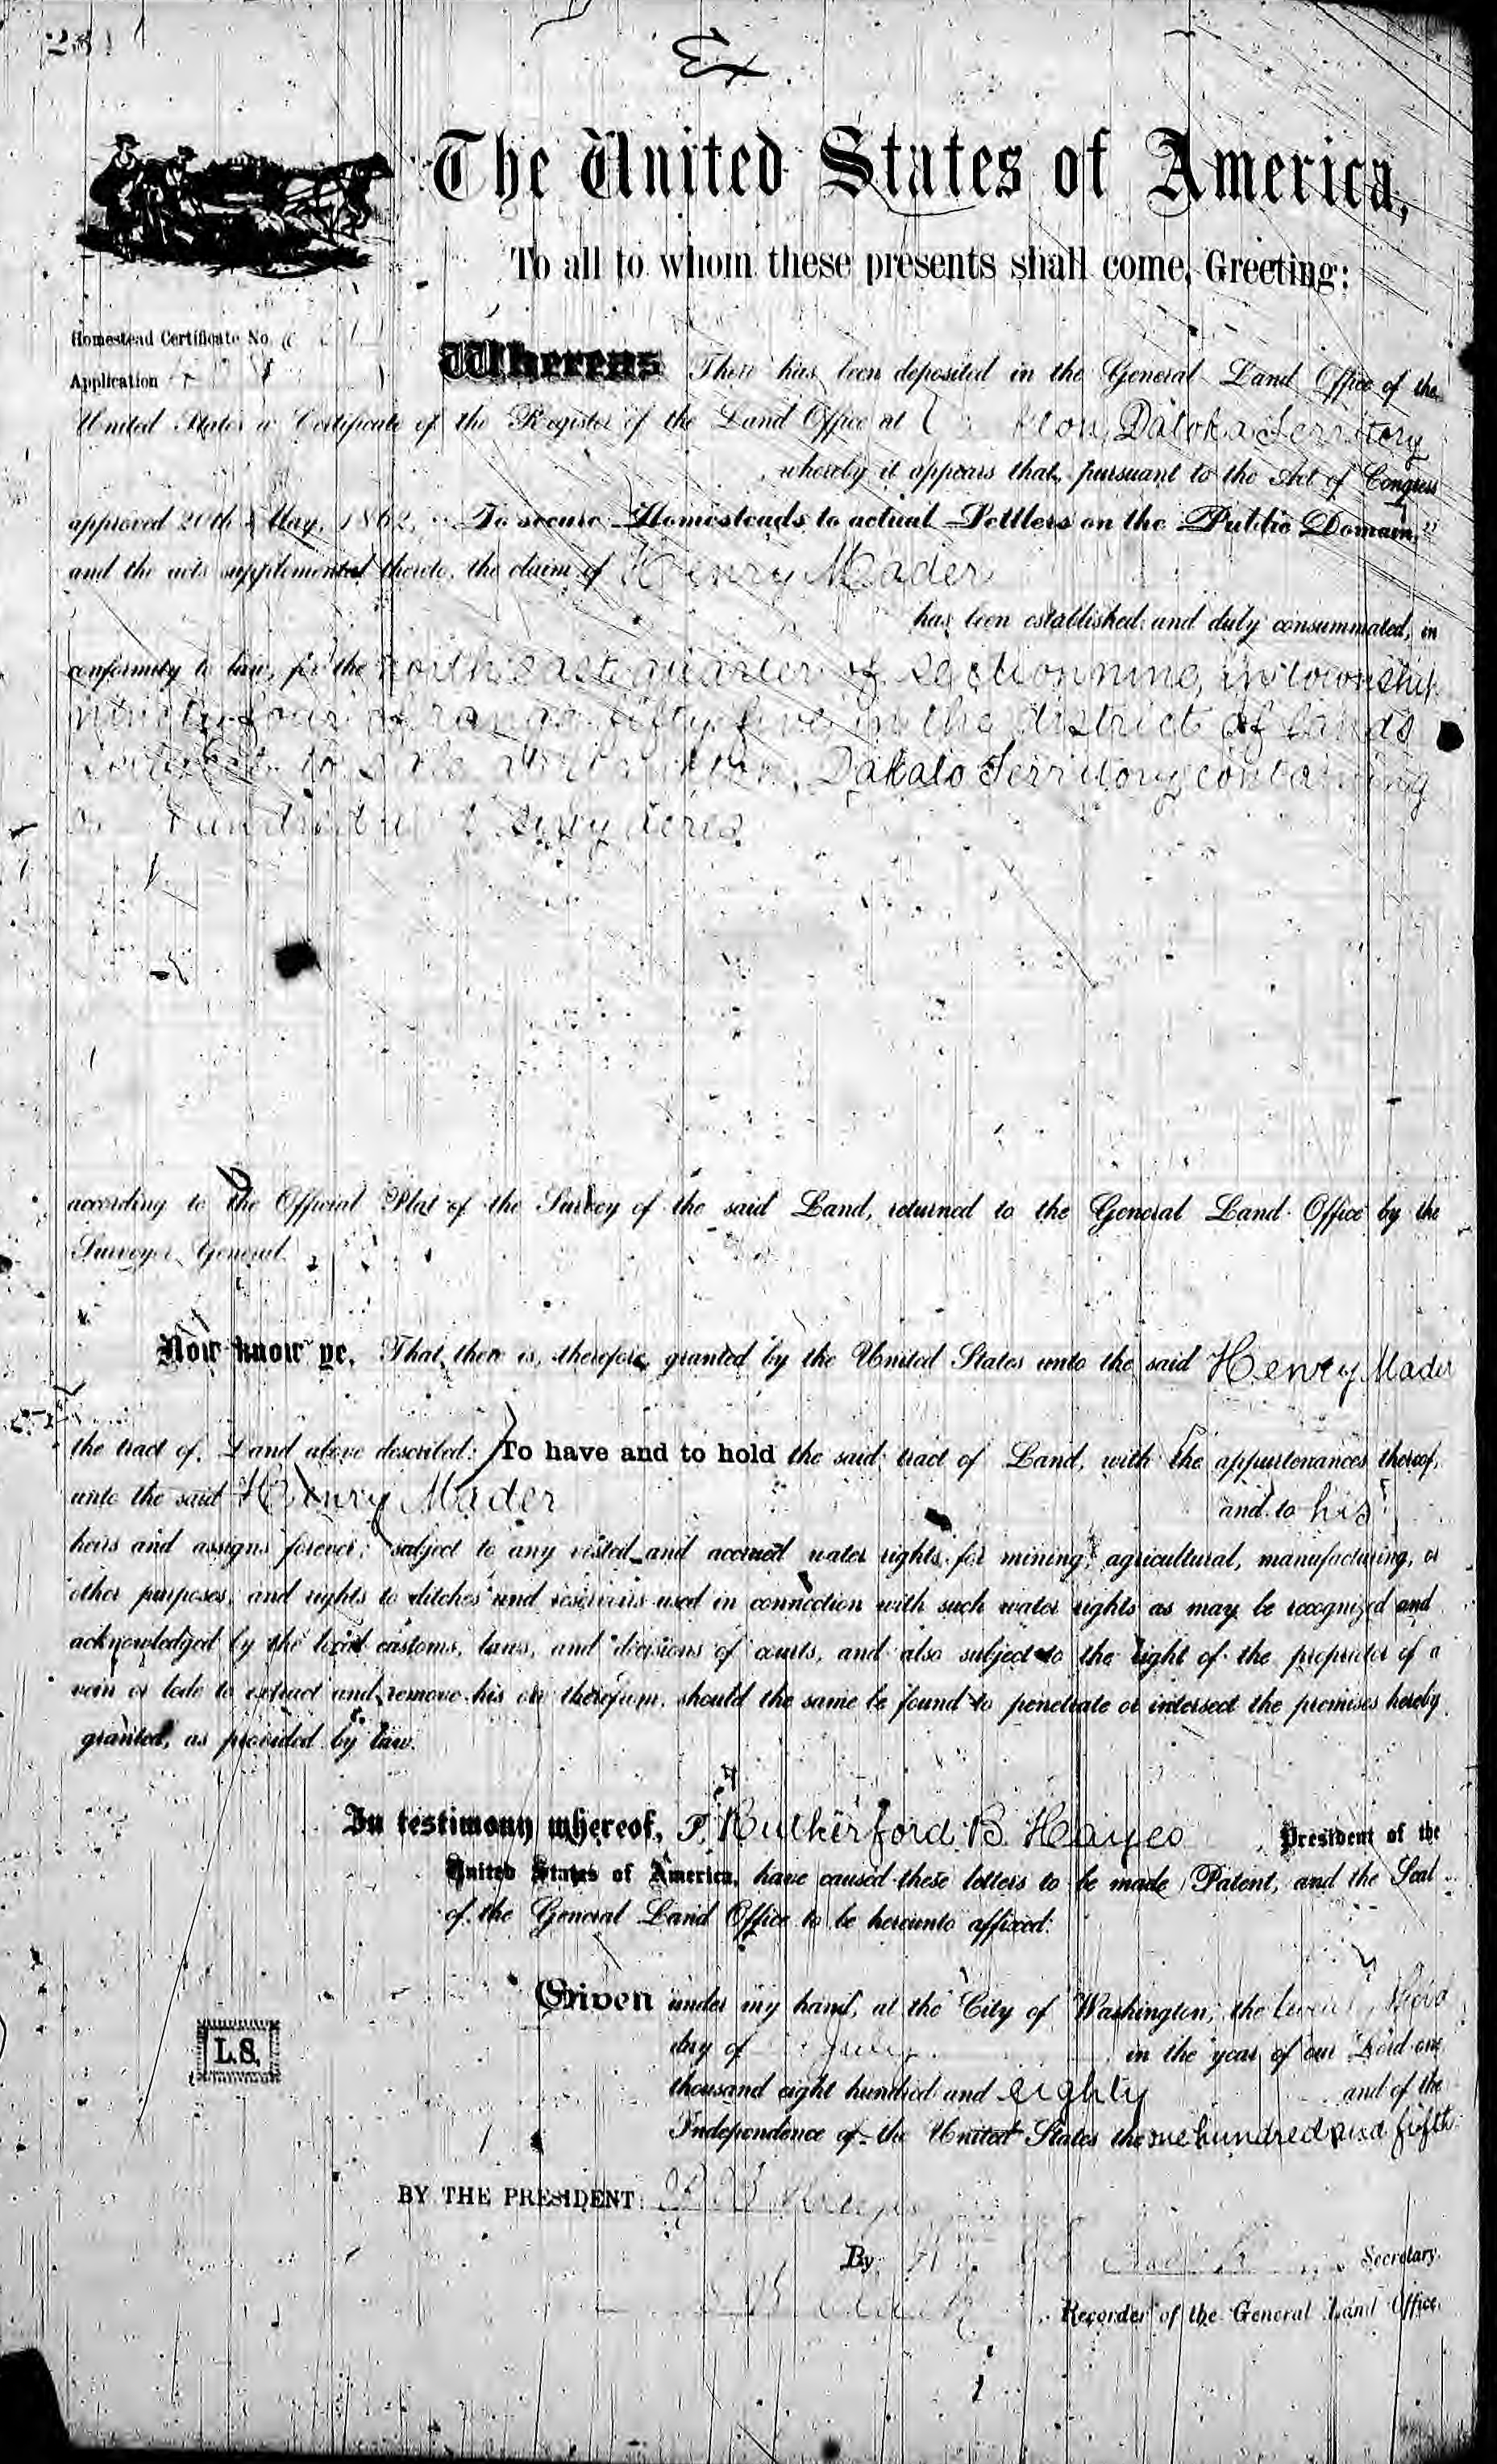 Ex
The United States of America,
To all to whom these presents shall come, Greeting:
Homestead Certificate No.
Application
Whereas There has been deposited in the General Land Office of the
United States a Certificate of the Register of the Land Office at Dakota Territory
whereby it appears that, pursuant to the Act of Congress
approved 20th May, 1862, "To secure Homesteads to actual Settlers on the Public Domain,"
and the acts supplemental thereto, the claim of Henry Mader
has been established and duly consummated, in
conformity to law, for the north east quarter of section nine, in township
ninety four of range fifty five in the district of lands
subject to sale at Dakato Territory containing
hundred and sixty acres
according to the Official Plat of the Survey of the said Land, returned to the General Land Office by the
Surveyor General.
Now know ye, That there is, therefore, granted by the United States unto the said Henry Mader
the tract of Land above described: To have and to hold the said tract of Land, with the appurtenances thereof,
unto the said Henry Mader and to his
heirs and assigns forever; subject to any vested and accrued water rights for mining, agricultural, manufacturing, or
other purposes, and rights to ditches and reservoirs used in connection with such water rights as may be recognized and
acknowledged by the local customs, laws, and decisions of courts, and also subject to the right of the proprietor of a
vein or lode to extract and remove his ore therefrom, should the same be found to penetrate or intersect the premises hereby
granted, as provided by law.
In testimony whereof, I, Rutherford B. Hayes President of the
United States of America, have caused these letters to be made Patent, and the Seal
of the General Land Office to be hereunto affixed.
Given under my hand, at the City of Washington, the third
L.S.
day of July in the year of our Lord one
thousand eight hundred and eighty and of the
Independence of the United States the one hundred and fifth
BY THE PRESIDENT: R. B. Hayes
By Secretary.
Recorder of the General Land Office.